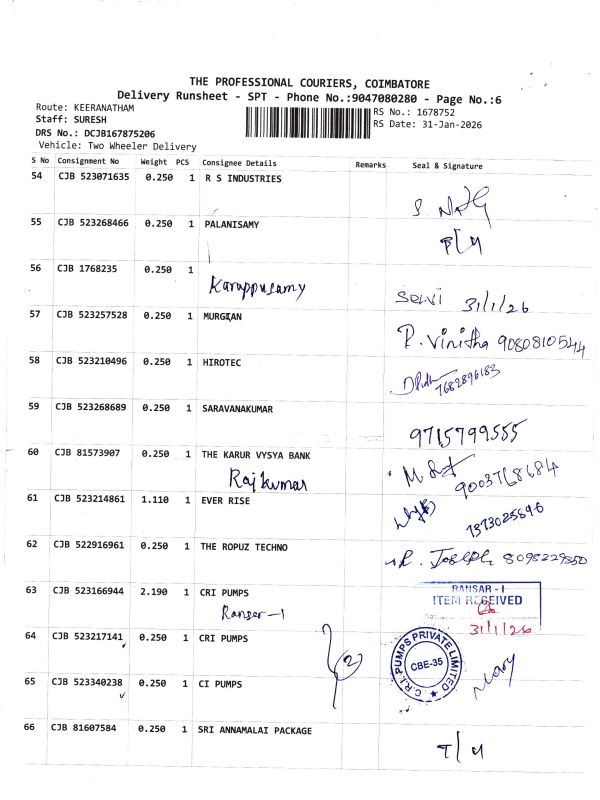 THE PROFESSIONAL COURIERS, COIMBATORE
Delivery Runsheet - SPT - Phone No.:9047080280 - Page No.:6
Route: KEERANATHAM
Staff: SURESH
DRS No.: DCJB167875206
Vehicle: Two Wheeler Delivery
RS No.: 1678752
RS Date: 31-Jan-2026
S No Consignment No Weight PCS Consignee Details Remarks Seal & Signature
54 CJB 523071635 0.250 1 R S INDUSTRIES
55 CJB 523268466 0.250 1 PALANISAMY
56 CJB 1768235 0.250 1
Karuppusamy
Selvi 31/1/26
57 CJB 523257528 0.250 1 MURGKAN
P. Vinitha 9080810544
58 CJB 523210496 0.250 1 HIROTEC
7682896183
59 CJB 523268689 0.250 1 SARAVANAKUMAR
9715799555
60 CJB 81573907 0.250 1 THE KARUR VYSYA BANK
Rajkumar
9003768684
61 CJB 523214861 1.110 1 EVER RISE
7373025896
62 CJB 522916961 0.250 1 THE ROPUZ TECHNO
R. Joseph 8098229850
63 CJB 523166944 2.190 1 CRI PUMPS
Ranser-1
RANSAR - I
ITEM RECEIVED
31/1/26
64 CJB 523217141 0.250 1 CRI PUMPS
2
C.R.I. PUMPS PRIVATE LIMITED
CBE-35
65 CJB 523340238 0.250 1 CI PUMPS
66 CJB 81607584 0.250 1 SRI ANNAMALAI PACKAGE